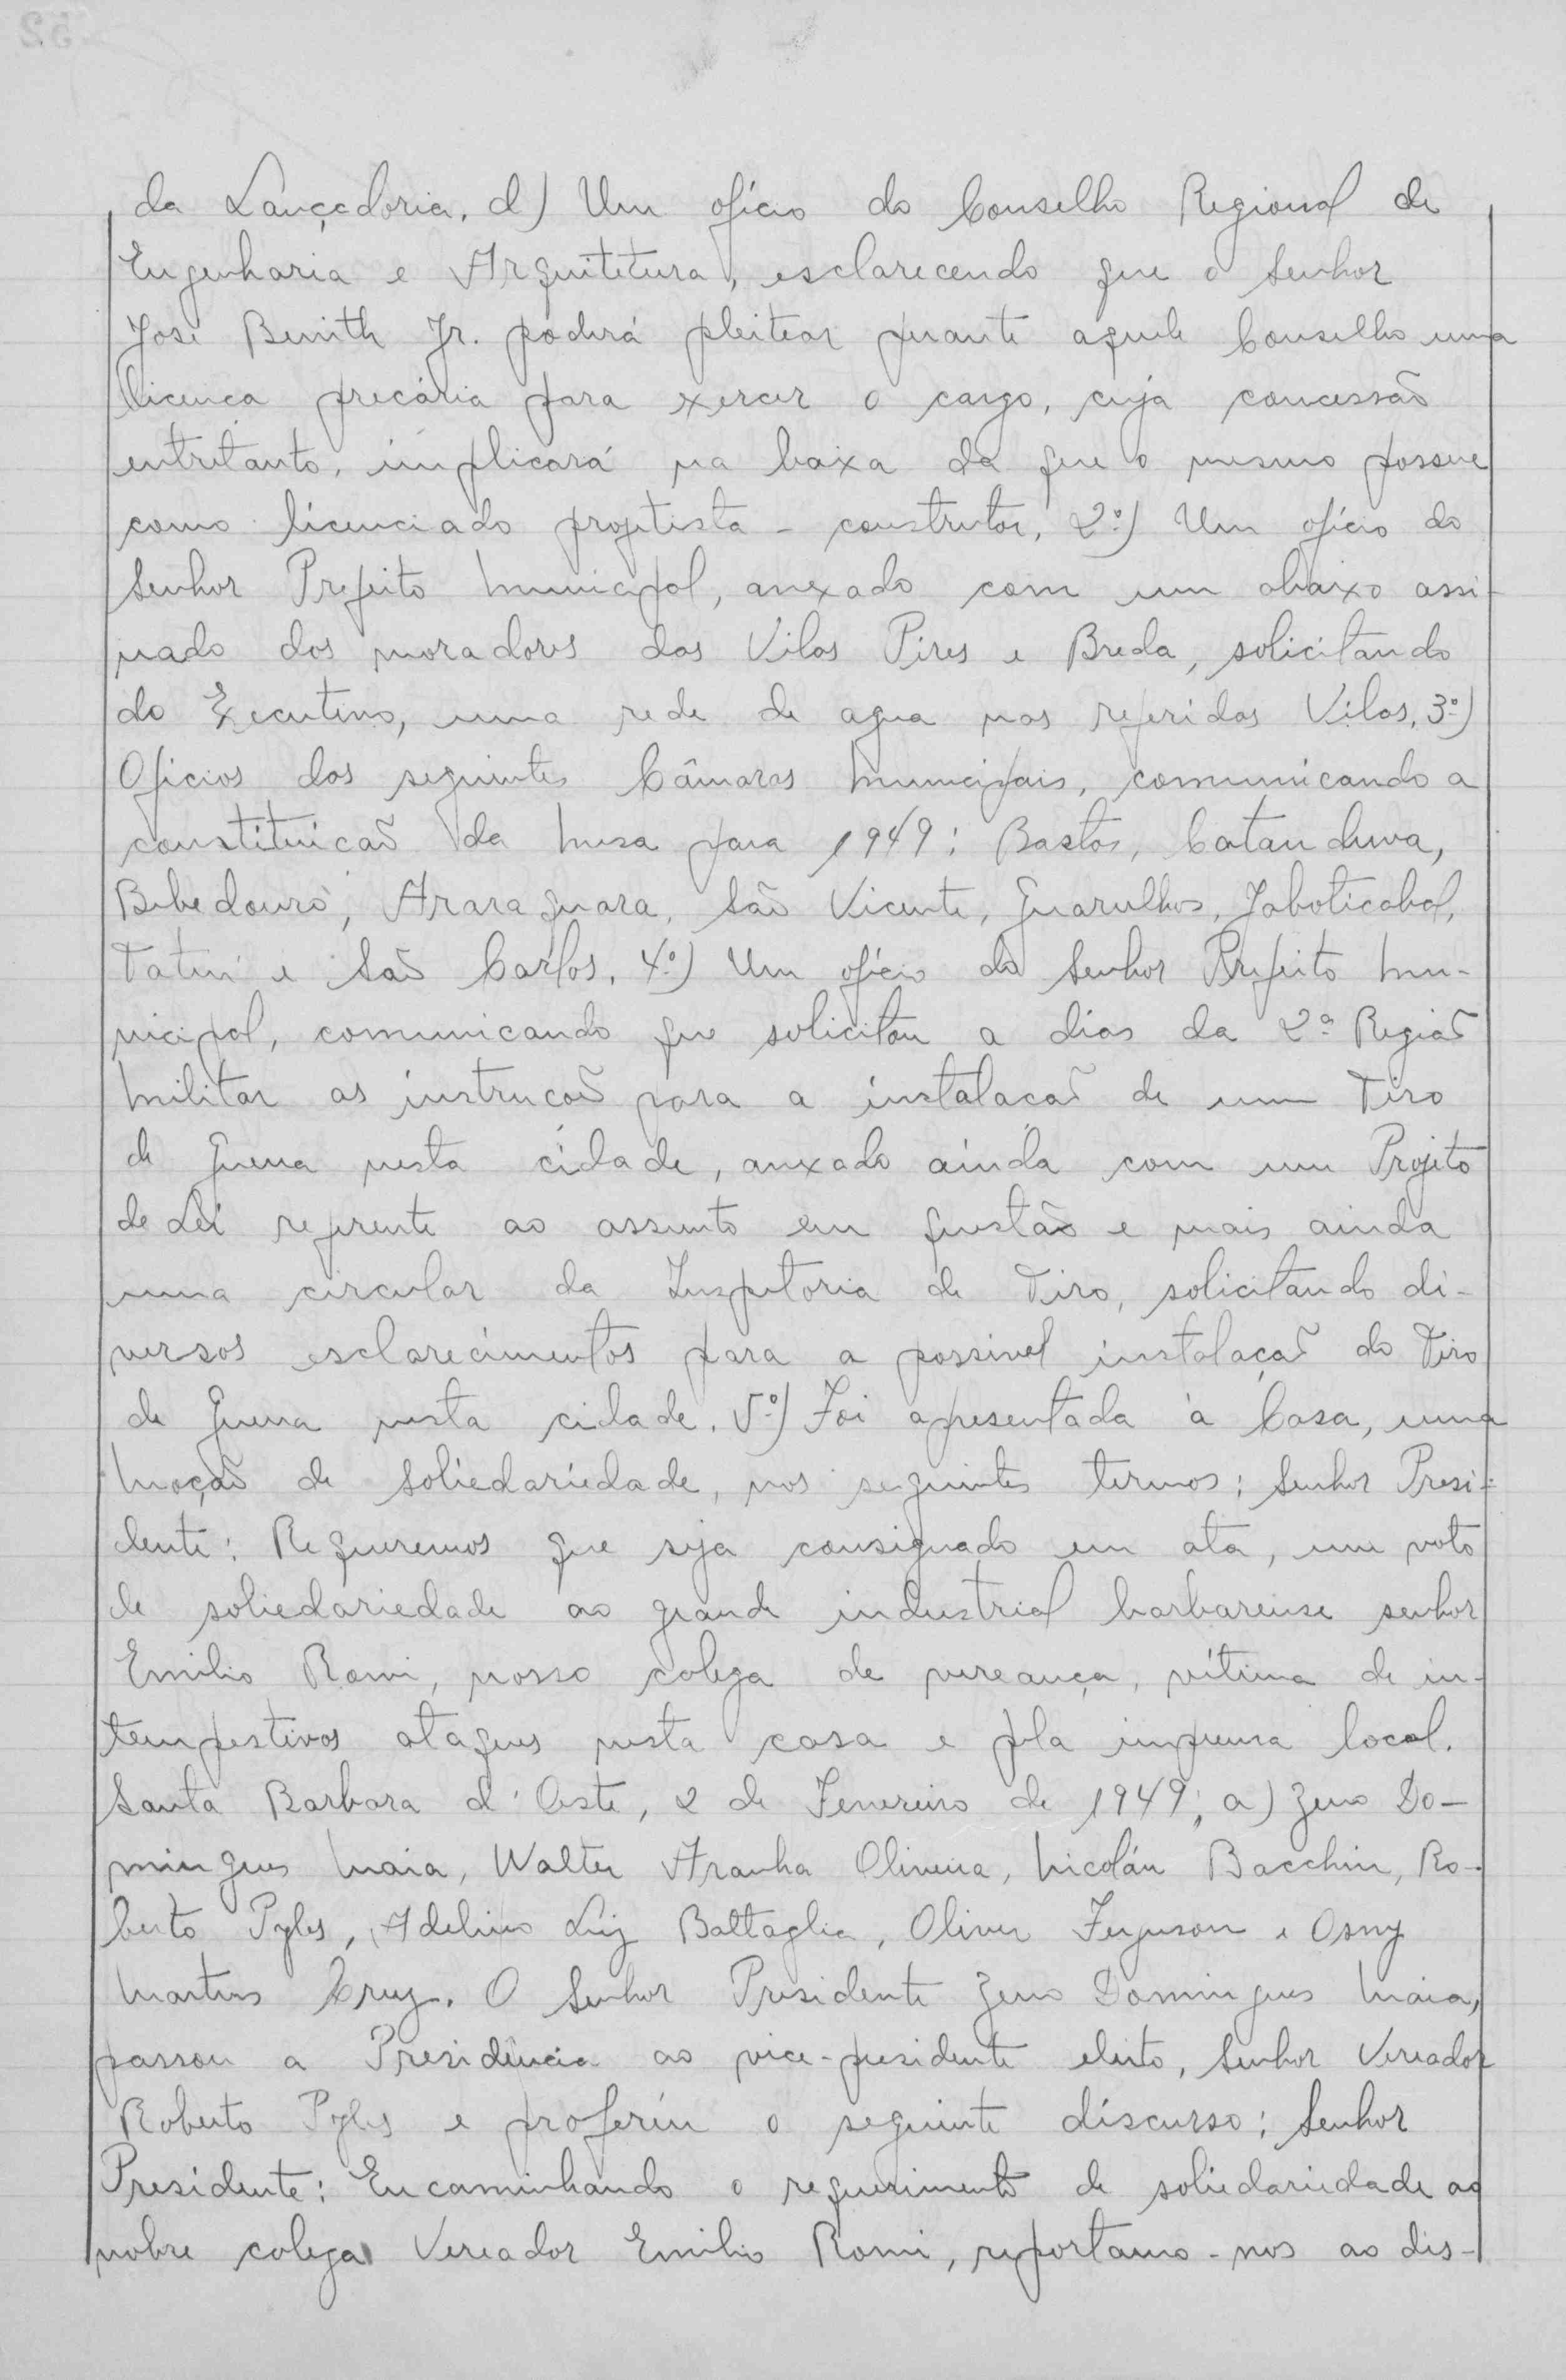 da Lançadoria. d) Um ofício do Conselho Regional de
Engenharia e Arquitetura, esclarecendo que o Senhor
José Benith Jr. poderá pleitear perante aquele Conselho uma
licença precária para exercer o cargo, cuja concessão
entretanto, implicará na baixa da que o mesmo possue
como licenciado projetista - construtor. 2º) Um ofício do
Senhor Prefeito Municipal, anexado com um abaixo assi-
nado dos moradores das Vilas Pires e Breda, solicitando
do Executivo, uma rede de agua nas referidas Vilas. 3º)
Oficios das seguintes Câmaras Municipais, comunicando a
constituicão da Mesa para 1949: Bastos, Catanduva,
Bebedouro, Araraquara, São Vicente, Guarulhos, Jaboticabal,
Tatuí e São Carlos. 4º) Um ofício do Senhor Prefeito Mu-
nicipal, comunicando que solicitou a dias da 2ª Região
Militar as instrucoẽs para a instalacaõ de um Tiro
de Guerra nesta cidade, anexado ainda com um Projeto
de Lei referente ao assunto em questão e mais ainda
uma circular da Inspetoria de Tiro, solicitando di-
versos esclarecimentos para a possivel instalação do Tiro
de Guerra nesta cidade. 5º) Foi apresentada à Casa, uma
Moção de soliedariedade, nos seguintes termos: Senhor Presi-
dente: Requeremos que seja consignado em ata, um voto
de soliedariedade ao grande industrial barbarense senhor
Emilio Romi, nosso colega de vereança, vítima de in-
tempestivos ataques nesta casa e pela imprensa local.
Santa Barbara d'Oeste, 2 de Fevereiro de 1949; a) Zeno Do-
mingues Maia, Walter Aranha Oliveira, Nicoláu Bacchin, Ro-
berto Pyles, Adelino Luiz Battaglia, Oliver Ferguson e Osny
Martins Cruz. O Senhor Presidente Zeno Domingues Maia,
passou a Presidência ao vice-presidente eleito, Senhor Vereador
Roberto Pyles e proferiu o seguinte discurso: Senhor
Presidente: Encaminhando o requerimento de soliedariedade ao
nobre colega Vereador Emilio Romi, reportamo-nos ao dis-